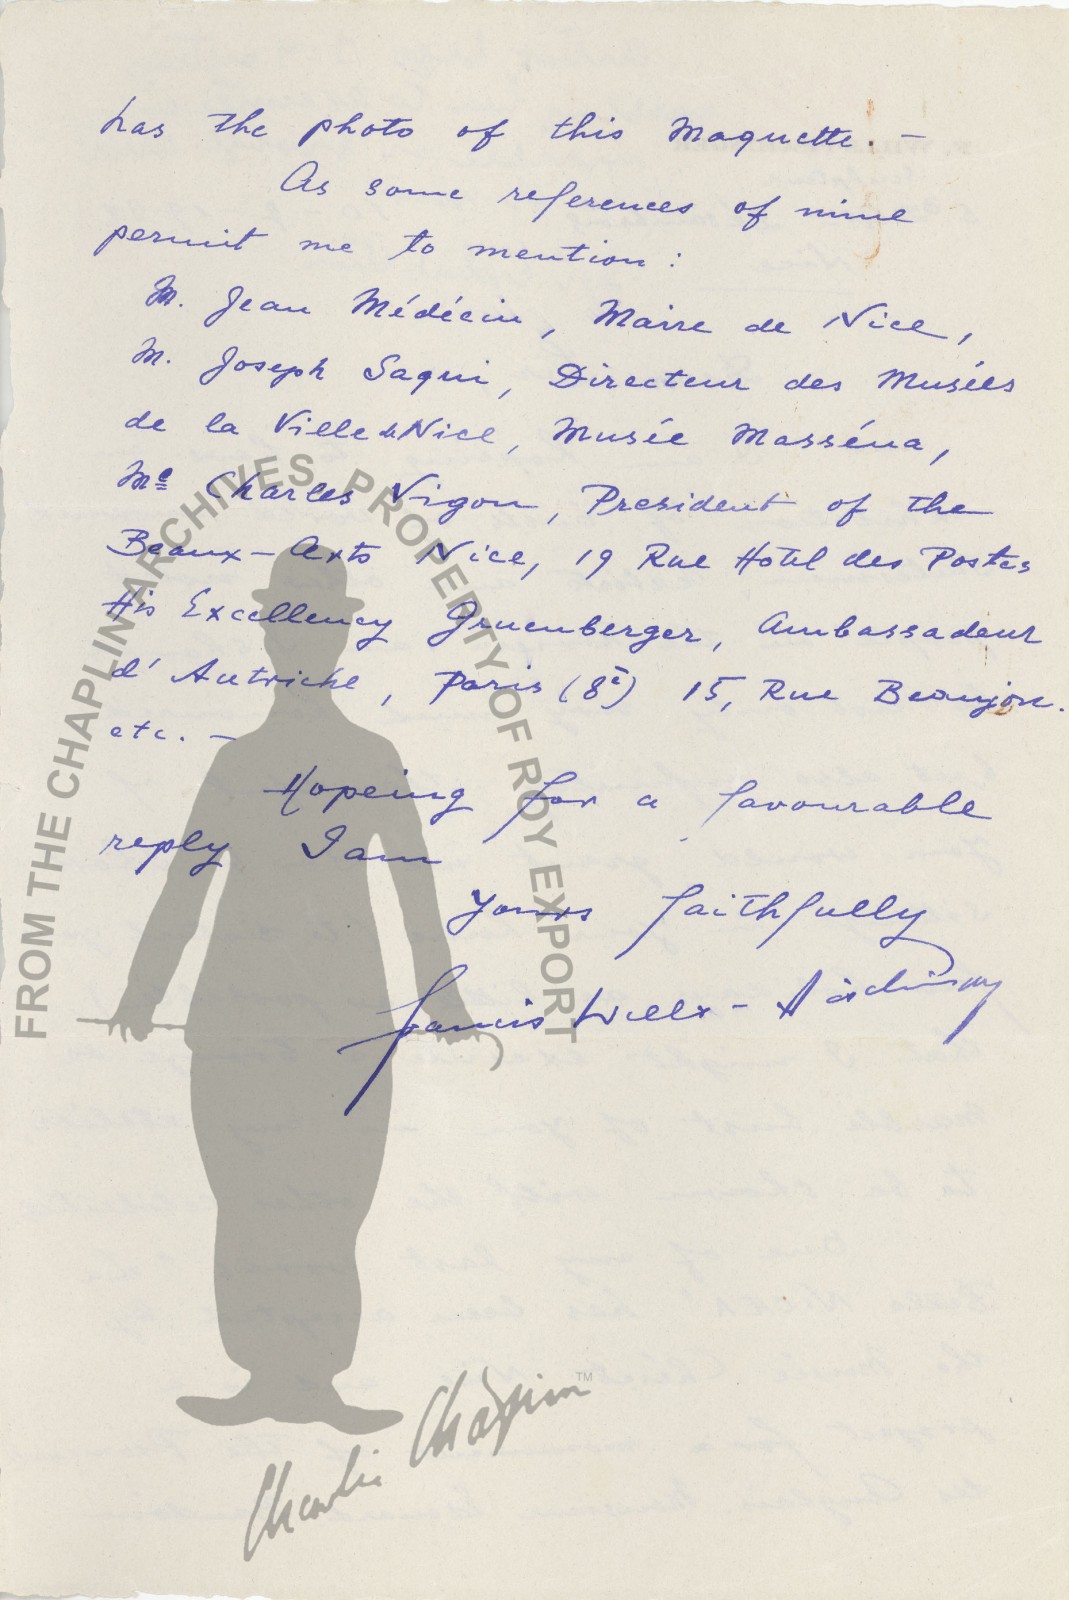 has the photo of this Maquette. —
As some references of mine
permit me to mention :
M. Jean Médécin, Maire de Nice,
M. Joseph Saqui, Directeur des Musées
de la Ville de Nice, Musée Masséna,
Me Charles Vigon, President of the
Beaux-Arts Nice, 19 Rue Hôtel des Postes
His Excellency Gruenberger, Ambassadeur
d'Autriche, Paris (8e) 15, Rue Beaujon.
etc. —
Hopeing for a favourable
reply I am
Yours faithfully
Francis
FROM THE CHAPLIN ARCHIVES. PROPERTY OF ROY EXPORT
Charlie Chaplin™